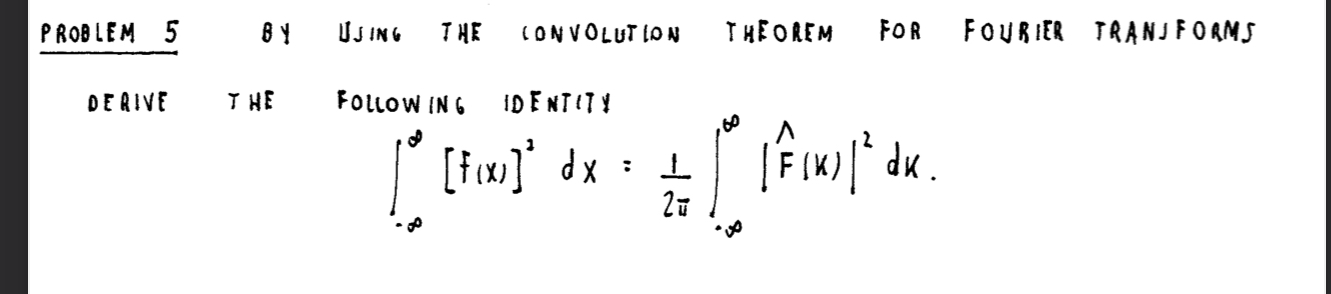 PROBLEM 5 BY USING THE CONVOLUTION THEOREM FOR FOURIER TRANSFORMS
DERIVE THE FOLLOWING IDENTITY
∫_{-∞}^{∞} [f(x)]² dx = 1/2π ∫_{-∞}^{∞} |F̂(k)|² dk.